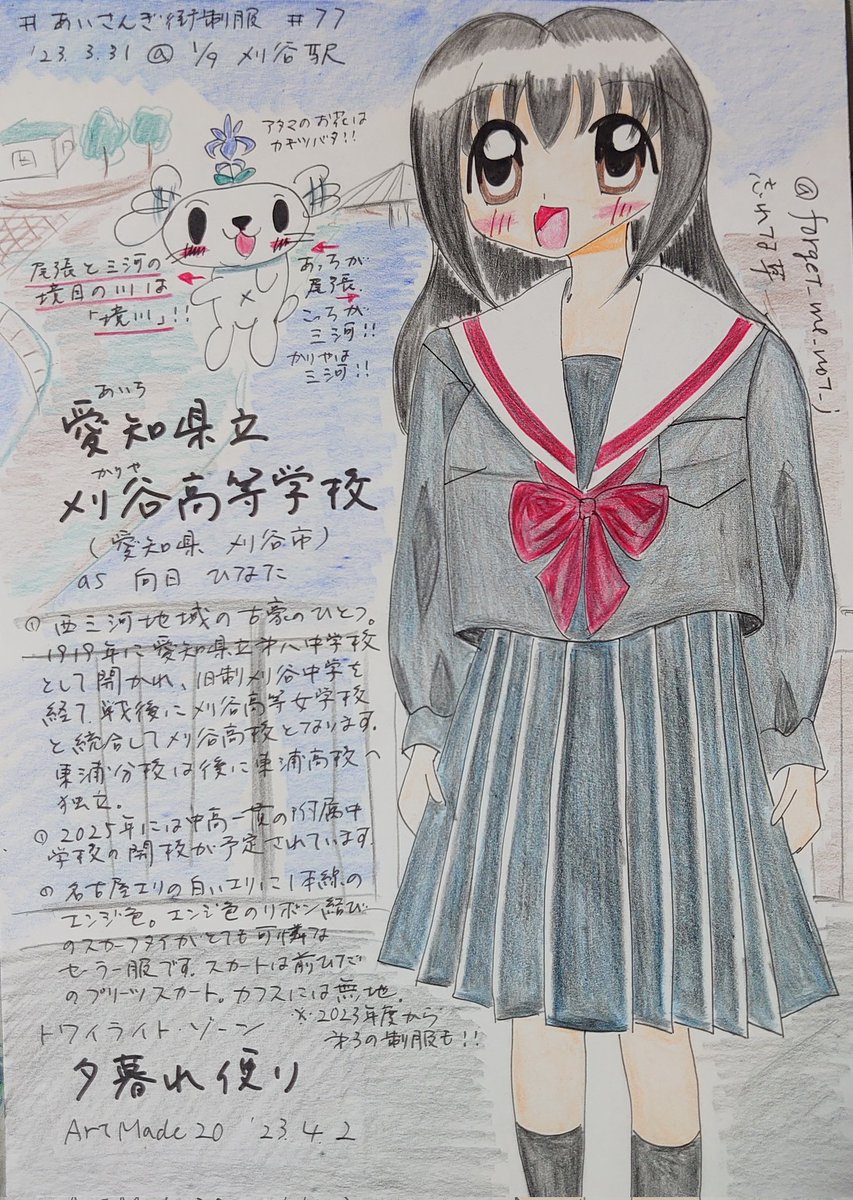 #あいさんぎ街制服 #77
'23.3.31 @ 1/9 刈谷駅
アタマのお花は
カキツバタ!!
@forget_me_not_j
され子る草
尾張と三河の
境目の川は
「境川」!!
あっちが
尾張、
こっちが
三河!!
かりやは
三河!!
あいち
愛知県立
かりや
刈谷高等学校
(愛知県 刈谷市)
as 向日 ひなた
① 西三河地域の古豪のひとつ。
1919年に愛知県立第八中学校
として開かれ、旧制刈谷中学を
経て、戦後に刈谷高等女学校
と統合して刈谷高校となります。
東浦分校は後に東浦高校へ
独立。
① 2025年には中高一貫の附属中
学校の開校が予定されています。
① 名古屋エリの白いエリに1本線の
エンジ色。エンジ色のリボン結び
のスカーフタイがとても可憐な
セーラー服です。スカートは前ひだ
のプリーツスカート。カフスには無地。
※2023年度から
第3の制服も!!
トワイライト・ゾーン
夕暮れ便り
Art Made 20 '23.4.2